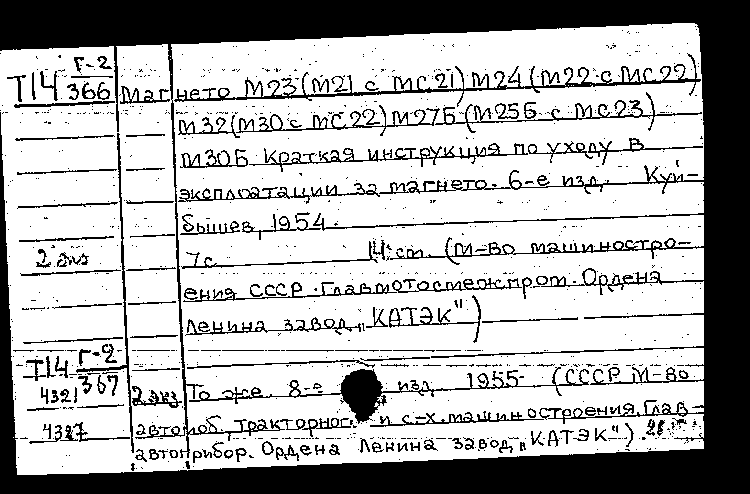 Т14 Г-2
366 Магнето М23 (М21 с МС21) М24 (М22 с МС22)
М32 (М30 с МС22) М27Б (М25Б с МС23)
М30Б Краткая инструкция по уходу в
эксплоатации за магнето. 6-е изд. Куй-
бышев, 1954.
2 экз 7 с. ст. (М-во машиностро-
ения СССР. Ордена
Ленина завод „КАТЭК")
Т14 Г-2
367
4321 2 экз. То же. 8-е изд. 1955 (СССР М-во
4327 автомоб., тракторног и с.-х. машиностроения. Глав-
автоприбор. Ордена Ленина завод „КАТЭК").